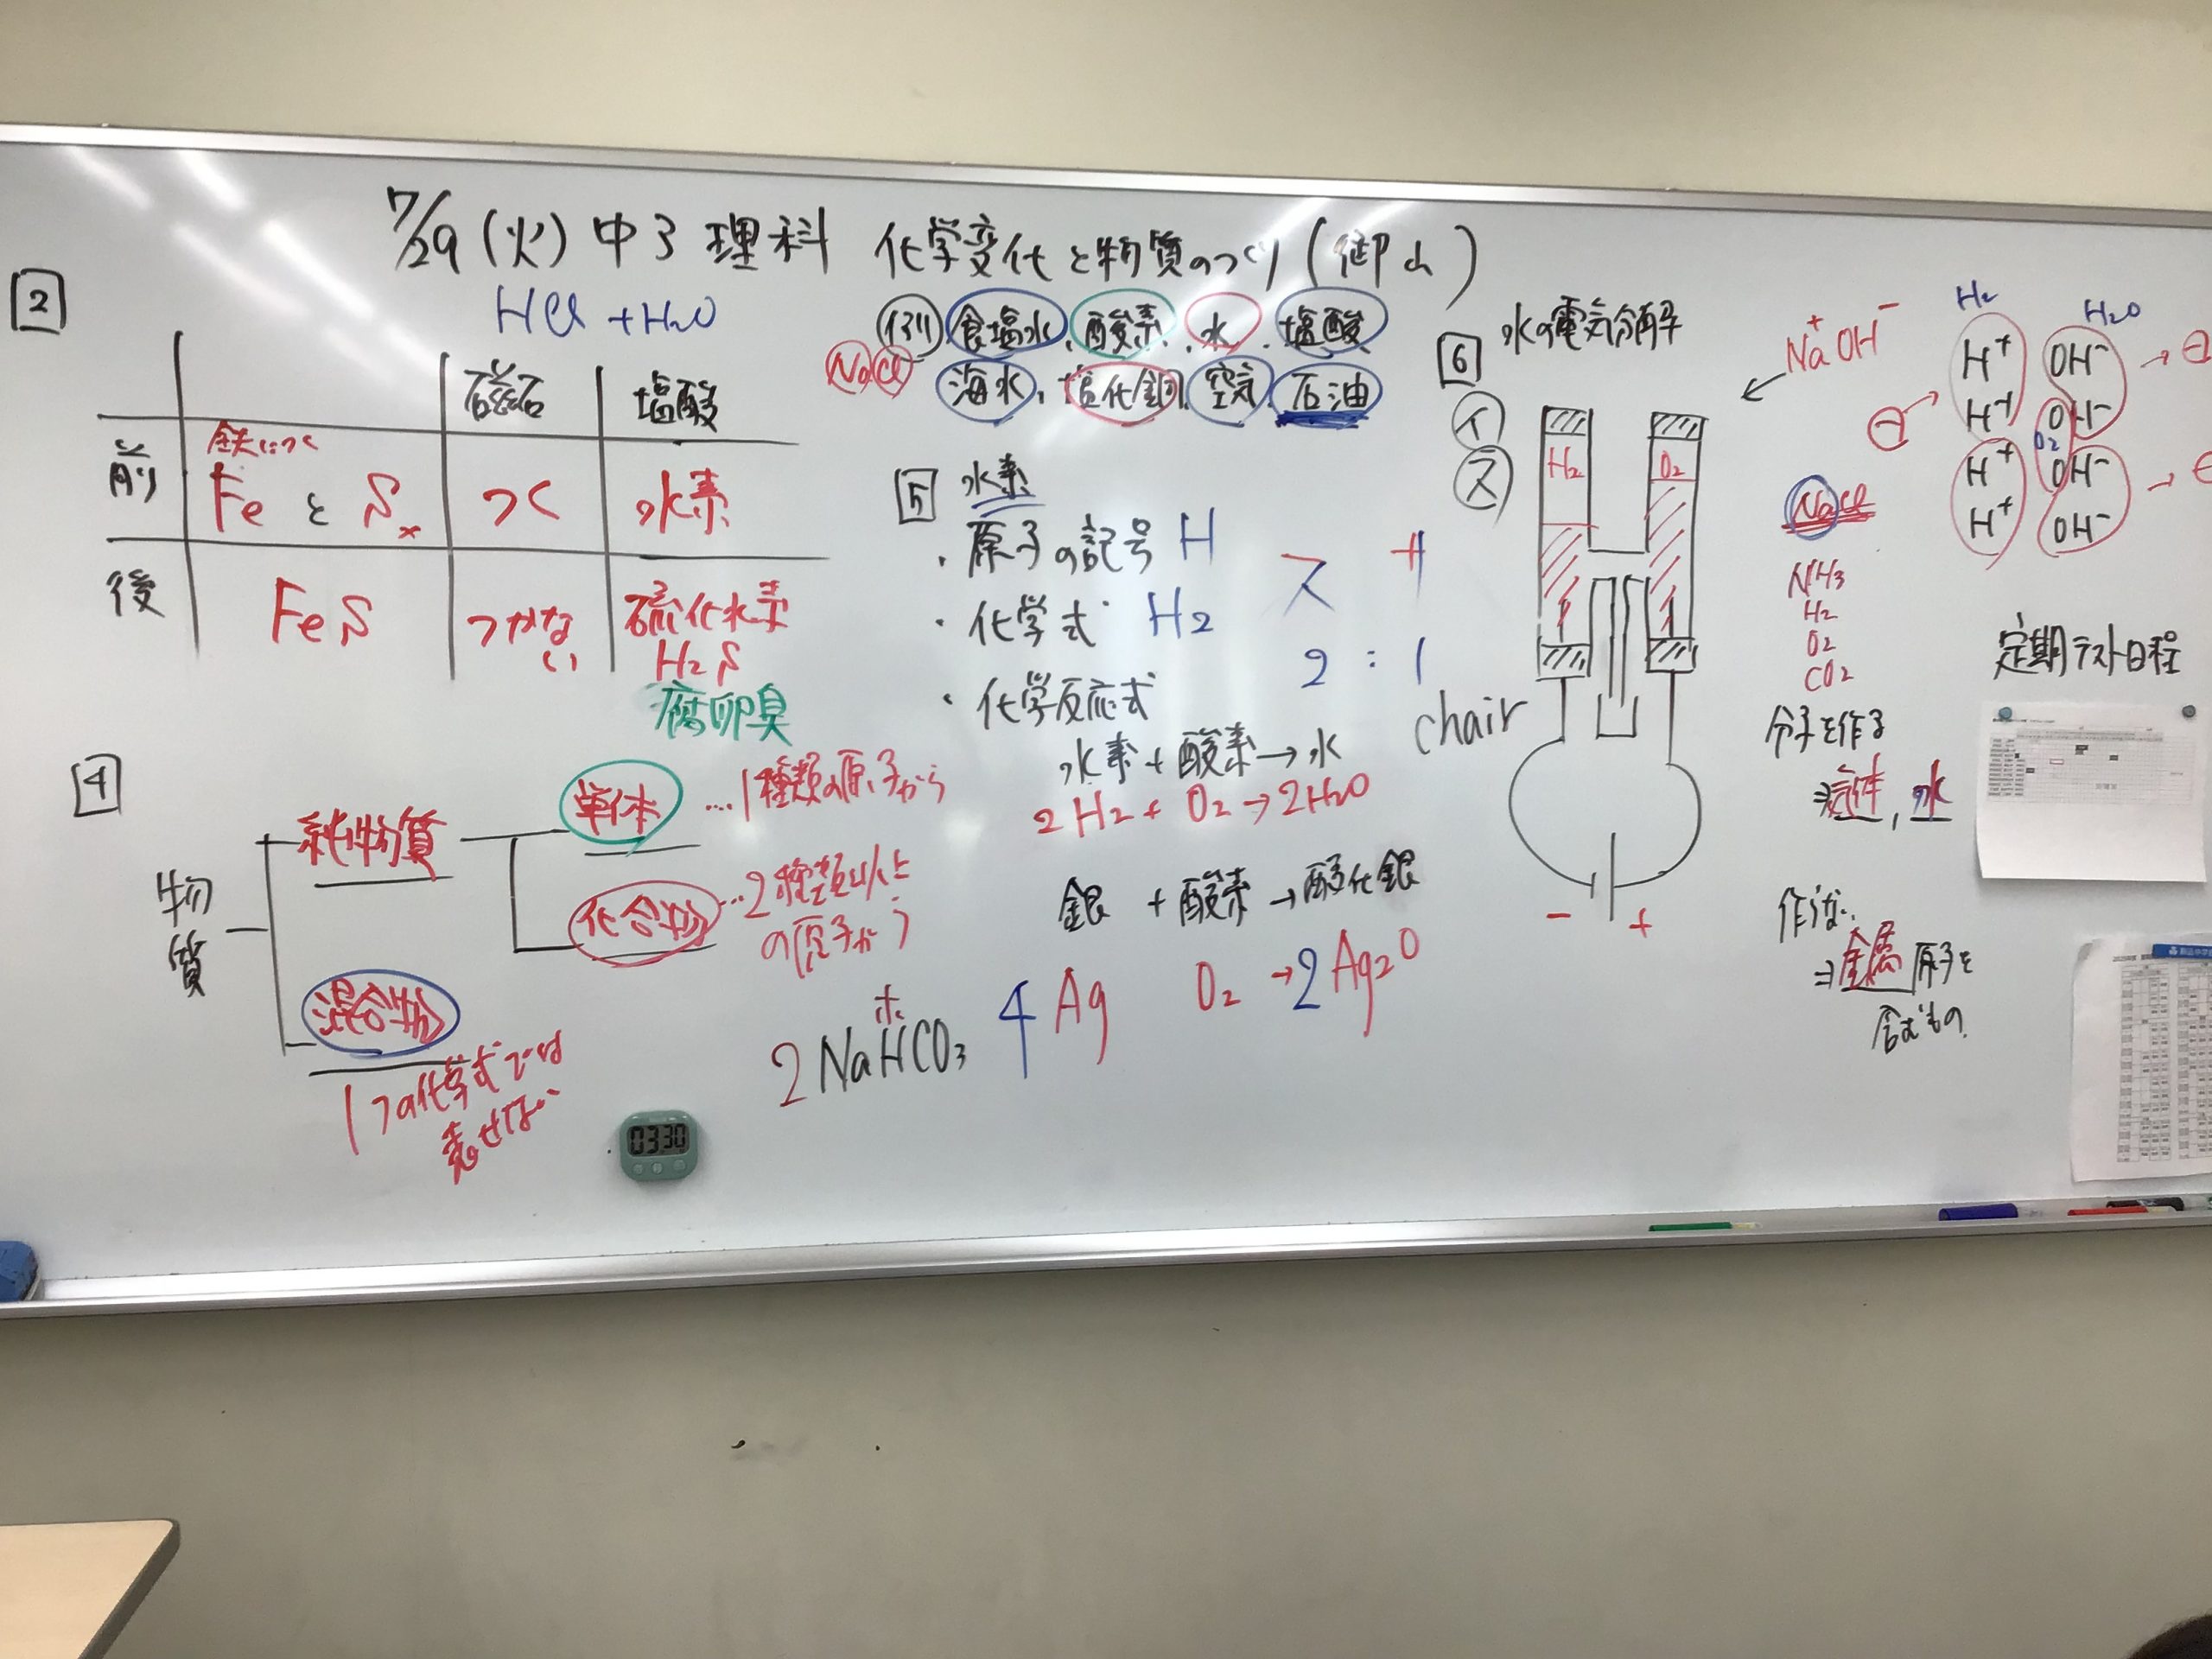 7/29(火)中3理科 化学変化と物質のつくり(御山)
2
HCl +H2O
磁石 塩酸
前 鉄につく
Fe と S つく 水素
後 FeS つかない 硫化水素
H2S
腐卵臭
(例) 食塩水、酸素、水、塩酸
NaCl 海水、塩化銅、空気、石油
4
物質
純物質
単体 …1種類の原子から
化合物 …2種類以上
の原子から
混合物
1つの化学式では
表せない
5 水素
・原子の記号 H
・化学式 H2
・化学反応式
水素+酸素→水
2H2+O2→2H2O
銀 +酸素→酸化銀
4Ag O2→2Ag2O
2NaHCO3
03:30
6 水の電気分解
イ
ス
ス +
2:1
chair
H2 O2
− +
Na+OH−
H2 H2O
H+ OH− → ⊖
⊖ → H+ OH−
O2
H+ OH− →
H+ OH−
NaCl
NH3
H2
O2
CO2
分子を作る
⇒気体,水
作らない
⇒金属原子を
含むもの
定期テスト日程